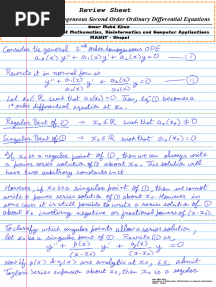 PDF
Review Sheet
ogeneous Second Order Ordinary Differential Equations
of Mathematics, Bioinformatics and Computer Applications
MANIT - Bhopal
Consider the general 2nd order homogeneous ODE
a₀(x) y'' + a₁(x) y' + a₂(x) y = 0 — (1)
Rewrite it in normal form as
y'' + a₁(x)/a₀(x) y' + a₂(x)/a₀(x) y = 0
Let x₀ ∈ ℝ such that a₀(x₀) = 0. Then, eq. (1) becomes a
order differential equation at x₀.
Regular Point of (1) → x₀ ∈ ℝ such that a₀(x₀) ≠ 0
Singular Point of (1) → x₀ ∈ ℝ such that a₀(x₀) = 0
If x₀ is a regular point of (1), then we can always write
a power series solution of (1) about x₀. This solution will
have two arbitrary constants in it.
However, if x₀ is a singular point of (1), then we cannot
write a power series solution of (1) about x₀. However in
some cases it is still possible to write a series solution of (1)
about x₀ involving negative or fractional powers of (x-x₀).
To classify which singular points allow a series solution,
let x₀ be a singular point of (1). Rewrite (1) as
y'' + p(x)/(x-x₀) y' + q(x)/(x-x₀)² y = 0
Now if p(x) & q(x) are analytic at x₀, i.e. admit
Taylors series expansion about x₀, then x₀ is a regular